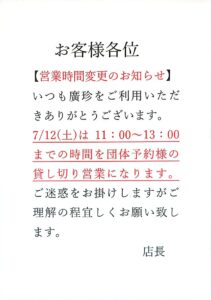 お客様各位
【営業時間変更のお知らせ】
いつも廣珍をご利用いただ
きありがとうございます。
7/12(土)は 11：00〜13：00
までの時間を団体予約様の
貸し切り営業になります。
ご迷惑をお掛けしますがご
理解の程宜しくお願い致し
ます。
店長